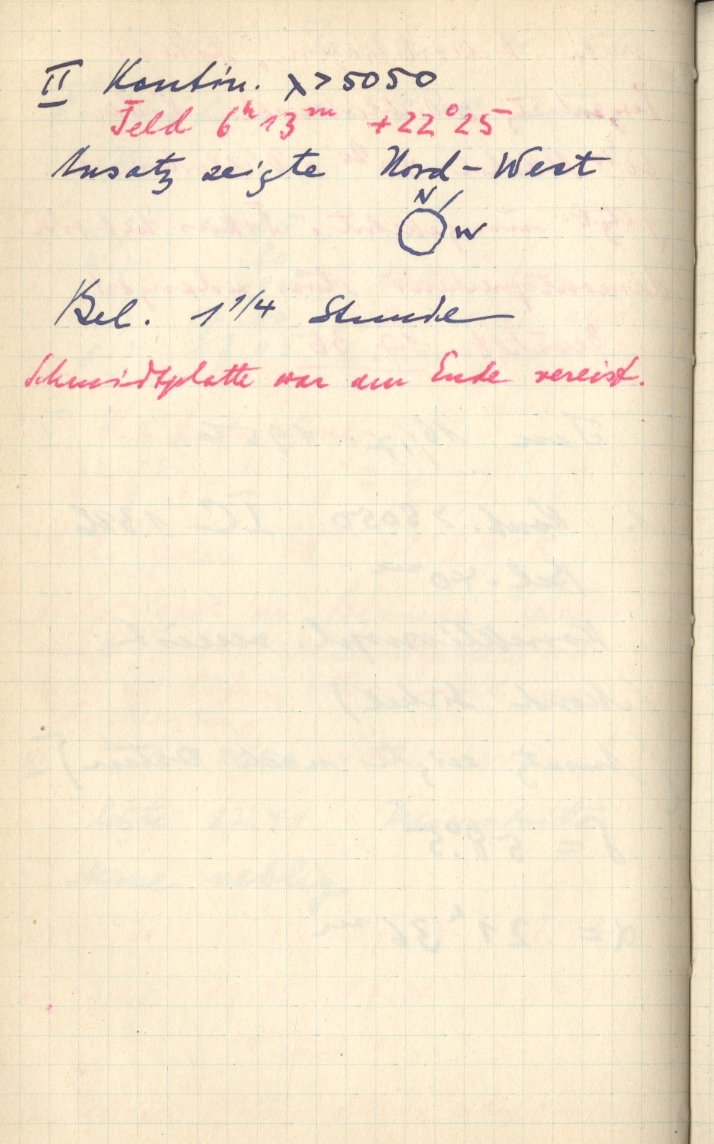 II Kontin. λ > 5050
Feld 6ʰ 13ᵐ +22° 25
Ansatz zeigte Nord-West
N
W
Bel. 1 1/4 Stunde
Schmidtplatte war am Ende vereist.